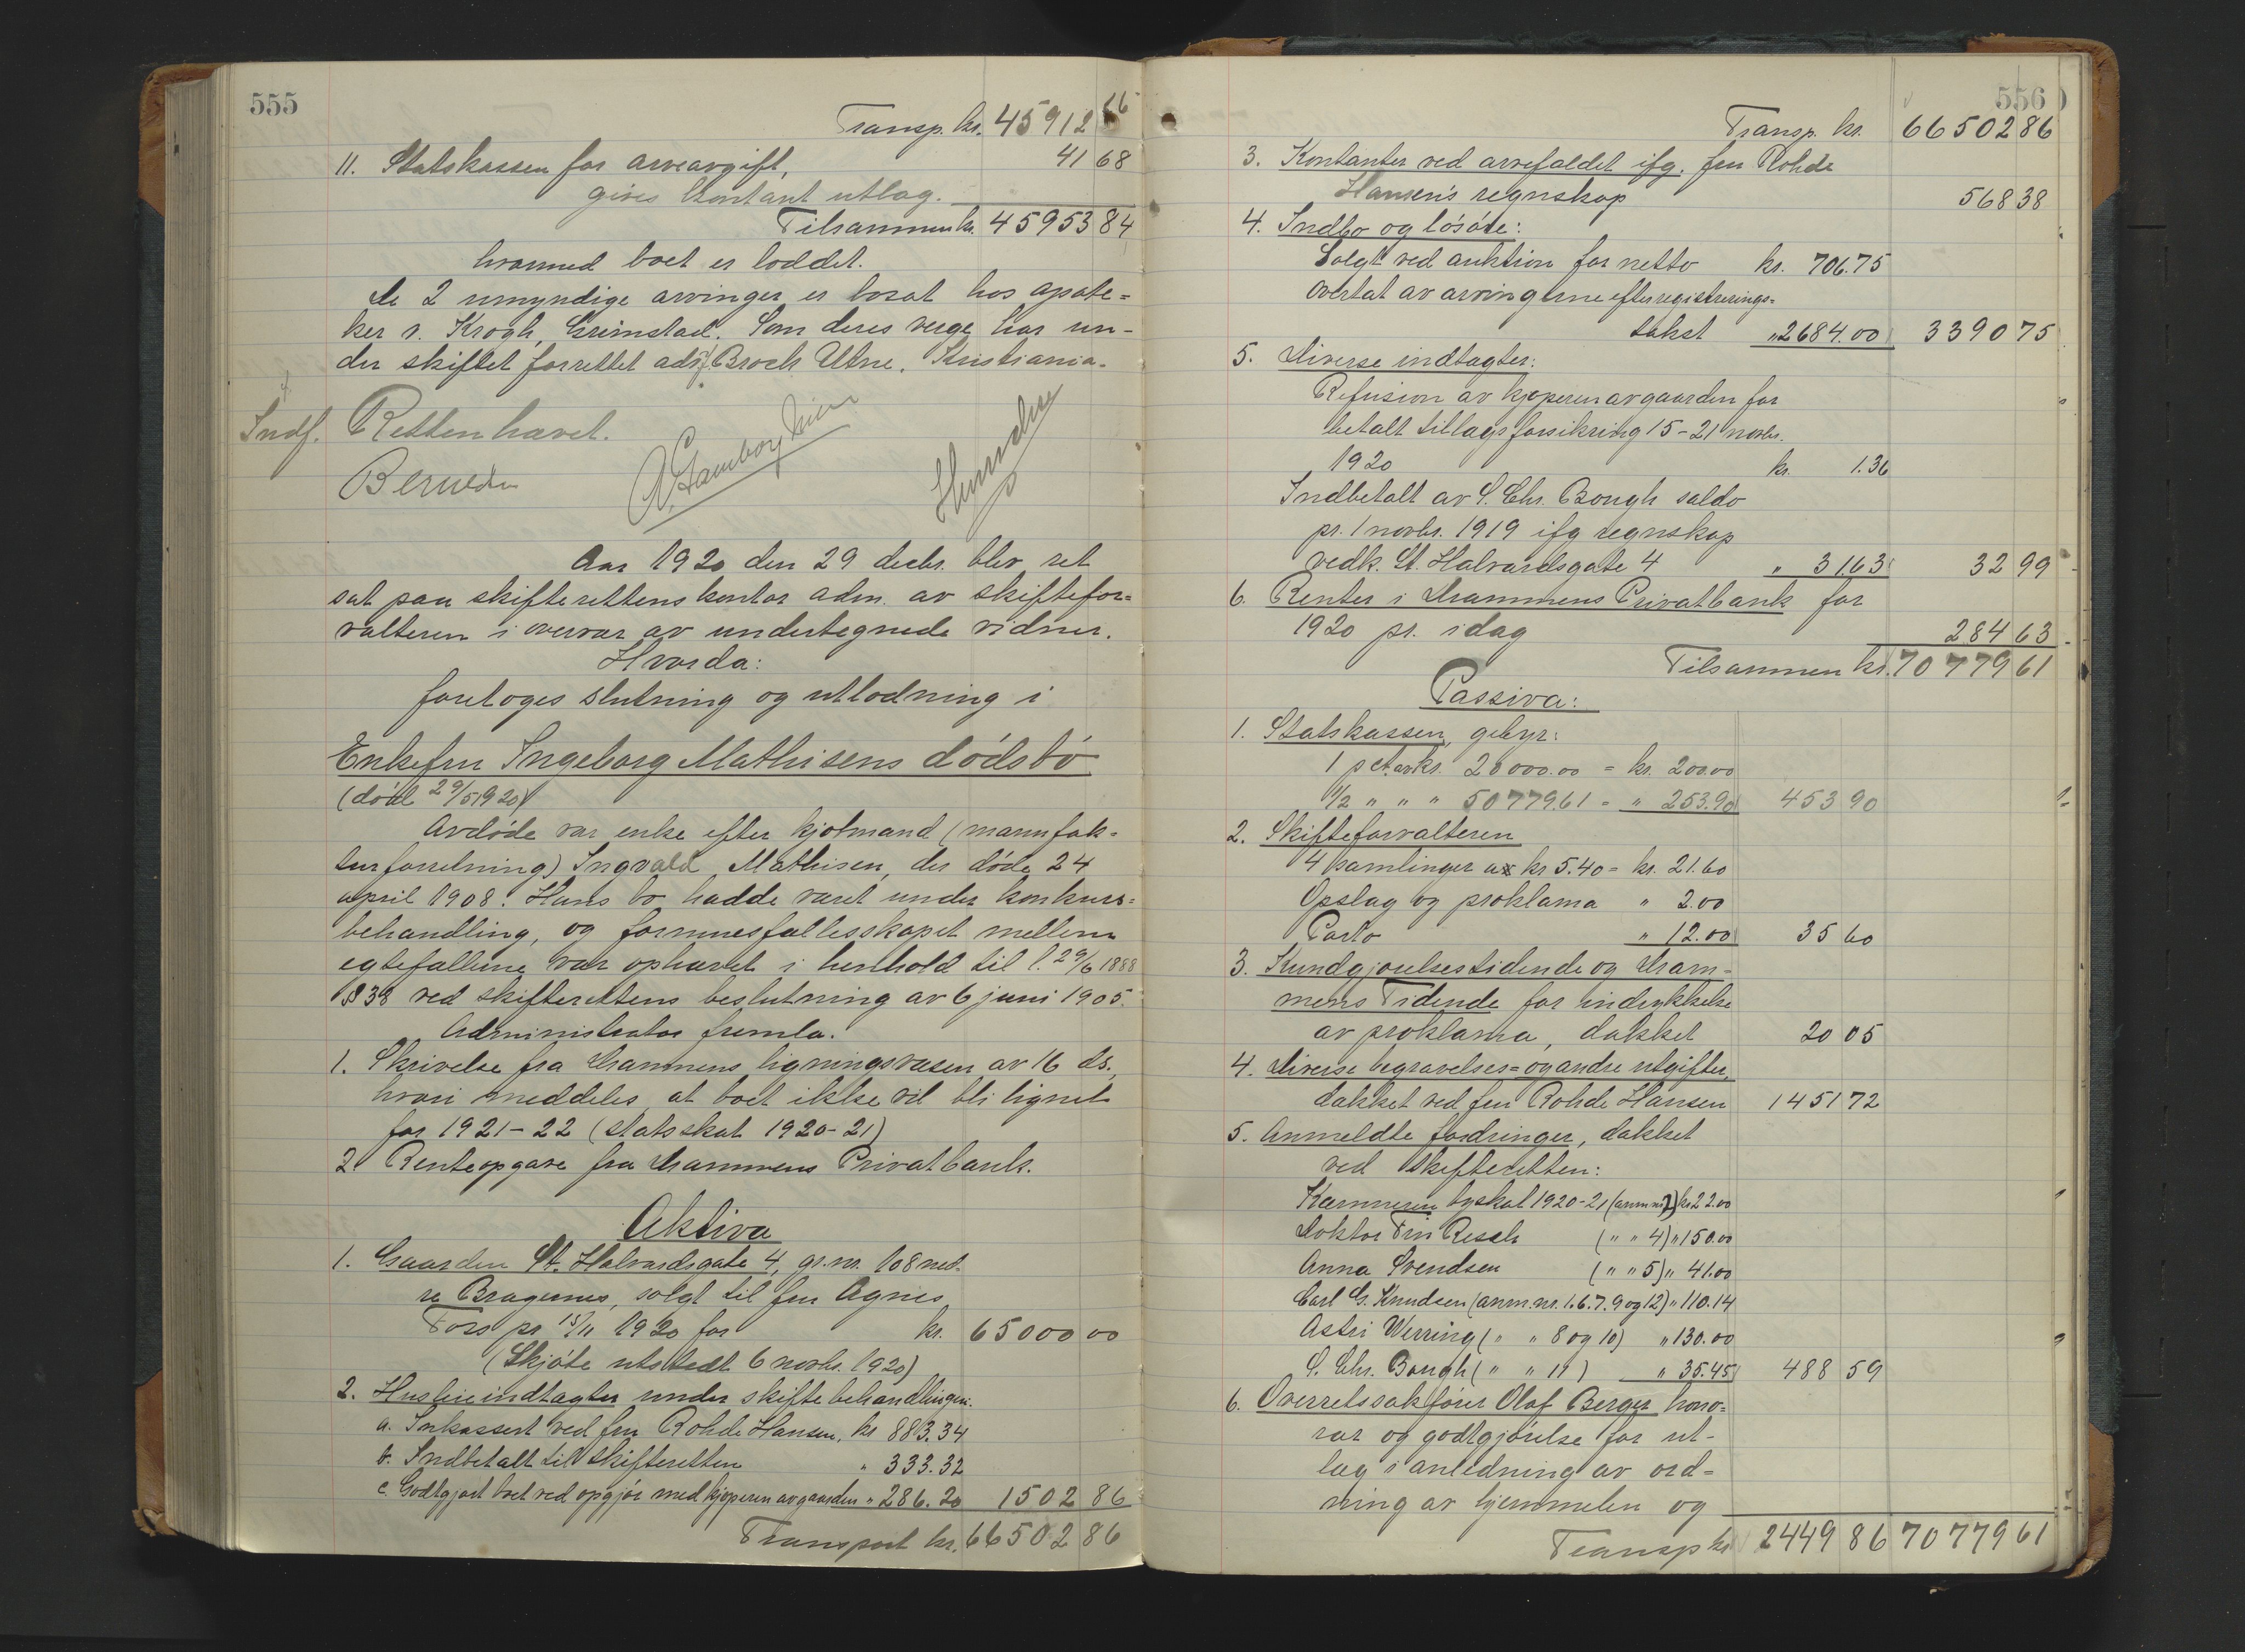 555
Transp. kr. 45912 16
11. Statskassen for arveavgift, 41 68
gives kontant utlæg.
Tilsammen kr. 45953 84
hvormed boet er loddet.
De 2 umyndige arvinger er bosat hos apote=
ker v. Krogh, Grimstad. Som deres verge har un-
der skiftet forrettet adv. Broch Utne, Kristiania.
Indf. Retten hævet.
Aar 1920 den 29 decbr. blev ret
sat paa skifterettens kontor adm. av skiftefor=
valteren i overvær av undertegnede vidner.
Hvorda:
foretoges slutning og utlodning i
Enkefru Ingeborg Mathisens dödsbo
(död 29/5 1920)
Avdöde var enke efter kjøbmand (manufak-
turforretning) Ingvald Mathisen, der döde 24
april 1908. Hans bo hadde været under konkurs=
behandling, og formuesfællesskapet mellem
egtefællerne var ophævet i henhold til l. 29/6 1888
§ 38 ved skifterettens beslutning av 6 juni 1905.
Administrator fremla.
1. Skrivelse fra Drammens ligningsvæsen av 16 ds.,
hvori meddeles, at boet ikke vil bli lignet
for 1921-22 (statsskat 1920-21)
2. Renteopgave fra Drammens Privatbank.
Aktiva
1. Gaarden St. Halvardsgate 4, gr. nr. 108 ned-
re Bragernes, solgt til fru Agnes
Fors pr 15/11 1920 for kr. 65000 00
(Skjöte utstedt 6 novbr. 1920)
2. Husleieindtægter under skiftebehandlingen.
a. Inkassert ved fru Rohde Hansen, kr 883.34
b. Indbetalt til skifteretten " 333.32
c. Godtgjort boet ved opgjör med kjøperen av gaarden " 286.20 1502 86
Transport kr. 66502 86
556
Transp. kr. 66502 86
3. Kontanter ved arvefaldet ifg. fru Rohde
Hansen's regnskap 568 38
4. Indbo og lösöre:
Solgt ved auktion for netto kr. 706.75
Overtat av arvingerne efter registrerings=
takst " 2684.00 3390 75
5. Diverse indtægter:
Refusion av kjøperen av gaarden for
betalt tillægsforsikring 15-21 novbr.
1920 kr. 1.36
Indbetalt av S. Chr. Bough saldo
pr. 1 novbr. 1919 ifg regnskap
vedk. St. Halvardsgate 4 " 31.63 32 99
6. Renter i Drammens Privatbank for
1920 pr. idag 284 63
Tilsammen kr. 70779 61
Passiva:
1. Statskassen, gebyr:
1 pct. av kr. 20000.00 = kr. 200.00
1/2 " " " 50779.61 = " 253.90 453 90
2. Skifteforvalteren
4 samlinger a kr 5.40 = kr. 21.60
Opslag og proklama " 2.00
Porto " 12.00 35 60
3. Kundgjørelsestidende og Dram-
mens Tidende for indrykkelse
av proklama, dækket 20 05
4. Diverse begravelses= og andre utgifter,
dækket ved fru Rohde Hansen 1451 72
5. Anmeldte fordringer, dækket
ved skifteretten:
Kæmneren byskat 1920-21 (anm nr 2) kr 22.00
Doktor Resch ( " " 4) " 150.00
Anna Svendsen ( " " 5) " 41.00
Carl G. Knudsen (anm. nr. 1. 6. 7. 9 og 12) " 110.14
Astri Werring ( " " 8 og 10) " 130.00
S. Chr. Bough ( " " 11 ) " 35.45 488 59
6. Overretssakfører Olaf Berger hono=
rar og godtgjörelse for ut-
læg i anledning av ord=
ning av hjemmelen og
Transp kr 2449 86 70779 61